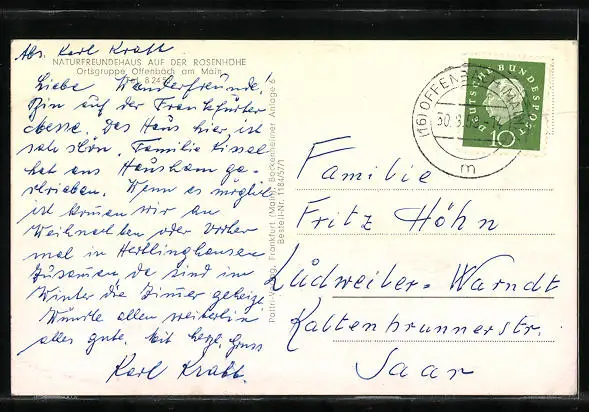 Abs. Karl Kraft
NATURFREUNDEHAUS AUF DER ROSENHÖHE
Ortsgruppe Offenbach am Main
Tel. 8 24
Liebe Wanderfreunde!
Bin auf der Frankfurter
Messe. Das Haus hier ist
sehr schön. Familie Kissel
hat aus Hausham ge-
schrieben. Wenn es möglich
ist können wir an
Weihnachten oder Vorher
mal in Hertlinghausen
Zusammen, da sind im
Winter die Zimmer geheizt
Wünsche allen weiterhin
alles gute. Mit herzl. Gruss
Karl Kraft.
Verlag, Frankfurt (Main), Bockenheimer Anlage 6
Bestell-Nr. 1184/57/1
(16) OFFENBACH (MAIN)
30.8.
m
DEUTSCHE BUNDESPOST
10
Familie
Fritz Höhn
Ludweiler-Warndt
Kaltenbrunnerstr.
Saar